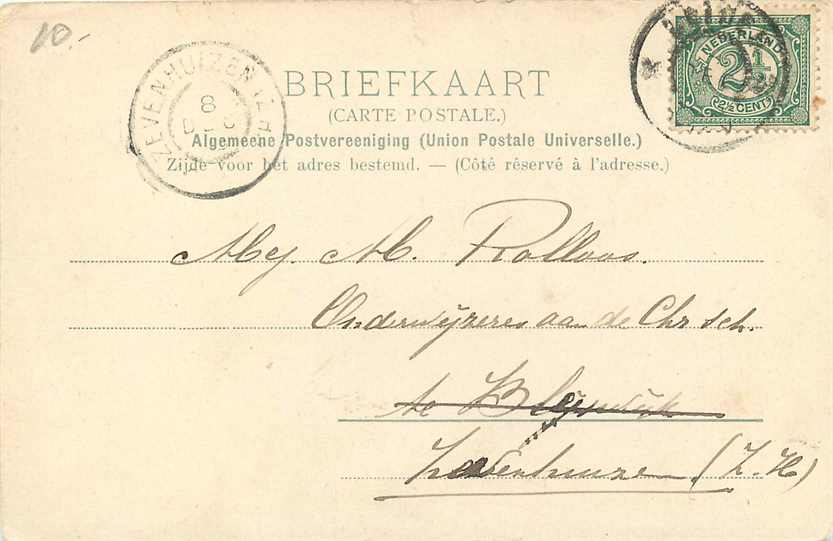 10.-
NEDERLAND
2½
2½ CENT
ZEVENHUIZEN (Z.H.)
8
DEC
BRIEFKAART
(CARTE POSTALE.)
Algemeene Postvereeniging (Union Postale Universelle.)
Zijde voor het adres bestemd. — (Côté réservé à l'adresse.)
Mej. M. Rolloos.
Onderwijzeres aan de Chr sch.
te Bleiswijk
Zevenhuizen (Z.H)